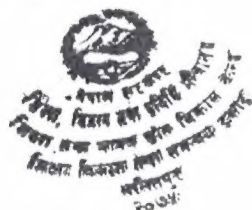 नेपाल सरकार
शिक्षा, विज्ञान तथा प्रविधि मन्त्रालय
शिक्षा तथा मानव स्रोत विकास केन्द्र
शिक्षा विकास तथा समन्वय इकाई
ललितपुर
२०७५